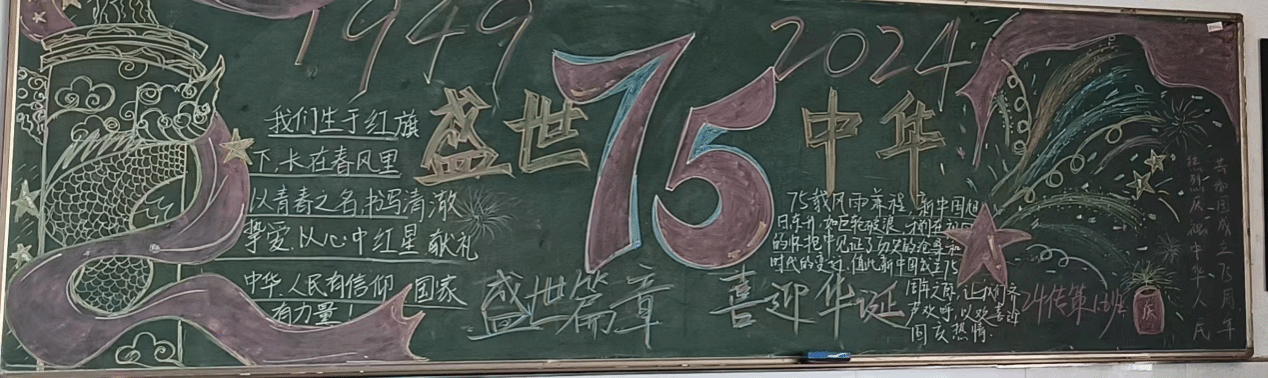 1949
2024
盛世75中华
我们生于红旗
下,长在春风里
以青春之名,书写清澈
挚爱,以心中红星献礼
中华人民有信仰 国家
有力量!
盛世篇章 喜迎华诞
75载风雨兼程,新中国如
日东升,如巨轮破浪,我们在祖
的怀抱中见证了历史的沧桑和
时代的变迁,值此新中国成立75
周年之际,让我们齐
声欢呼,以欢喜迎
国庆热情.
热烈庆祝中华人民
共和国成立75周年
庆